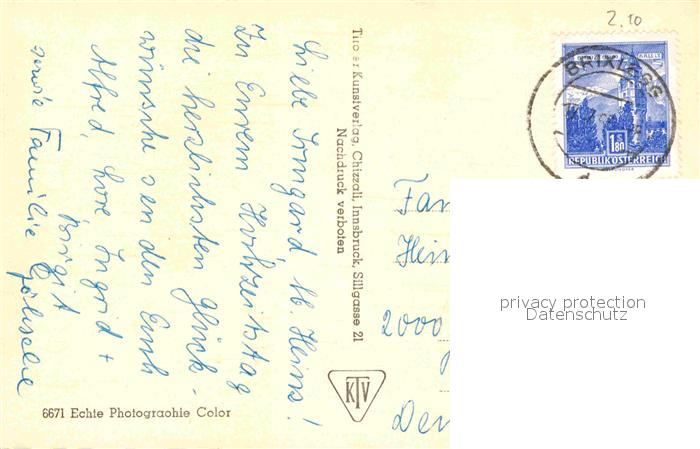 2.10
Liebe Irmgard, lb. Heinz!
Zu Eurem Hochzeitstag
die herzlichsten Glück-
wünsche senden Euch
Alfred, Lore Ingrid +
Birgit
sowie Familie
Tiroler Kunstverlag, Chizzali, Innsbruck, Sillgasse 21
Nachdruck verboten
6671 Echte Photographie Color
KTV
BRIXLEGG
1.80
S
REPUBLIK ÖSTERREICH
Fam
Hein
2000
Deu
privacy protection
Datenschutz